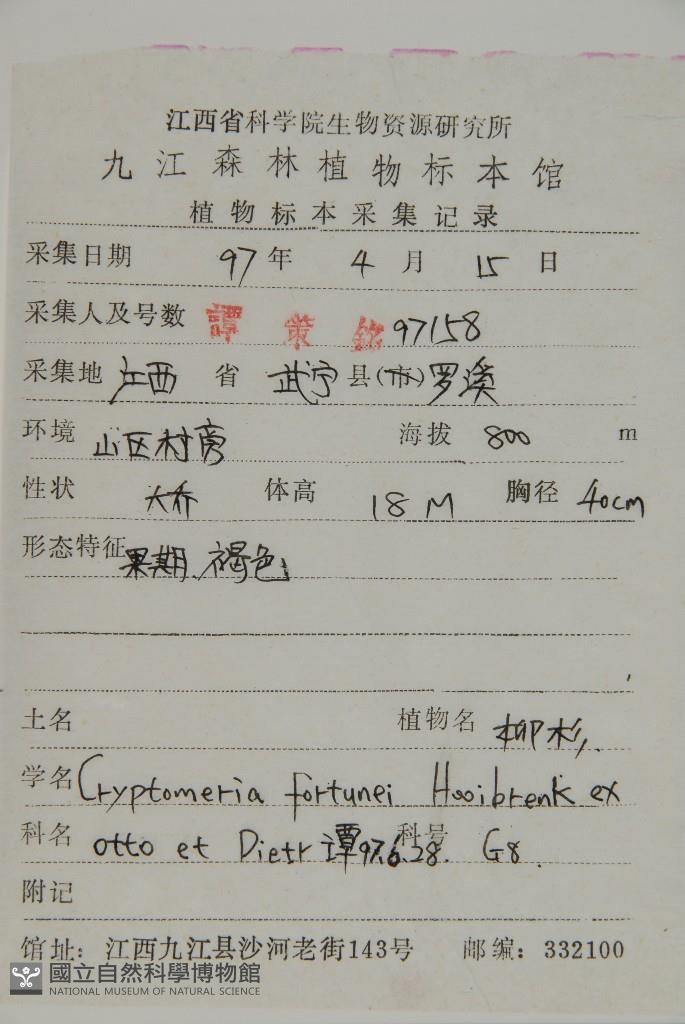 江西省科学院生物资源研究所
九江森林植物标本馆
植物标本采集记录
采集日期 97年 4月 15日
采集人及号数 譚策銘 97158
采集地 江西 省 武宁县(市)罗溪
环境 山区村旁 海拔 800 m
性状 大乔 体高 18M 胸径 40cm
形态特征 果期、褐色
土名 植物名 柳杉
学名 Cryptomeria fortunei Hooibrenk ex
科名 otto et Dietr 谭97.6.28. 科号 G8.
附记
馆址：江西九江县沙河老街143号 邮编：332100
國立自然科學博物館
NATIONAL MUSEUM OF NATURAL SCIENCE